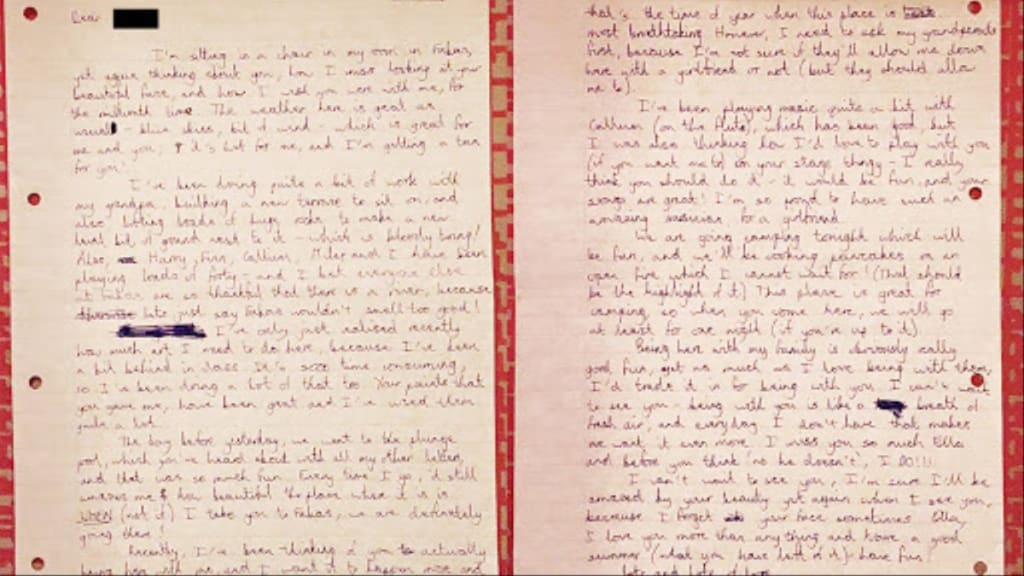 Dear
I'm sitting in a chair in my room in Fakas,
yet again thinking about you, how I miss looking at your
beautiful face, and how I wish you were with me, for
the millionth time. The weather here is great as
usual - blue skies, bit of wind - which is great for
me and you; it's hot for me, and I'm getting a tan
for you!
I've been doing quite a bit of work with
my grandpa, building a new terrace to sit on, and
also lifting loads of huge rocks to make a new
level bit of ground next to it - which is bloody boring!
Also, Harry, Finn, Callum, Miles and I have been
playing loads of footy - and I bet everyone else
at Fakas are so thankful that there is a river, because
otherwise lets just say Fakas wouldn't smell too good!
I've only just realised recently
how much art I need to do here, because I've been
a bit behind in class. It's sooo time consuming,
so I've been doing a lot of that too. Your paints that
you gave me, have been great and I've used them
quite a lot.
The day before yesterday, we went to the plunge
pool, which you've heard about with all my other letters,
and that was so much fun. Every time I go, it still
amazes me how beautiful the place where I is is
WHEN (not if) I take you to Fakas, we are definitely
going there!
Recently, I've been thinking of you actually
being here with me, and I want it to happen more and
that's the time of year when this place is
most breathtaking. However, I need to ask my grandparents
first, because I'm not sure if they'll allow me down
here with a girlfriend or not (but they should allow
me to).
I've been playing music quite a bit with
Callum (on the flute), which has been good, but
I was also thinking how I'd love to play with you
(if you want me to) on your stage thingy - I really
think you should do it - it would be fun, and your
songs are great! I'm so proud to have such an
amazing musician for a girlfriend.
We are going camping tonight which will
be fun, and we'll be cooking pancakes on an
open fire which I cannot wait for! (That should
be the highlight of it) This place is great for
camping, so when you come here, we will go
at least for one night (if you're up to it).
Being here with my family is obviously really
good fun, yet as much as I love being with them,
I'd trade it in for being with you. I can't wait
to see you, being with you is like a breath of
fresh air, and everyday I don't have that makes
me want it even more. I miss you so much Ella
and before you think 'no he doesn't', I DO!!!
I can't wait to see you, I'm sure I'll be
amazed by your beauty yet again when I see you,
because I forget your face sometimes. Ella,
I love you more than anything and have a good
summer (what you have left of it) - have fun!
Lots and lots of love